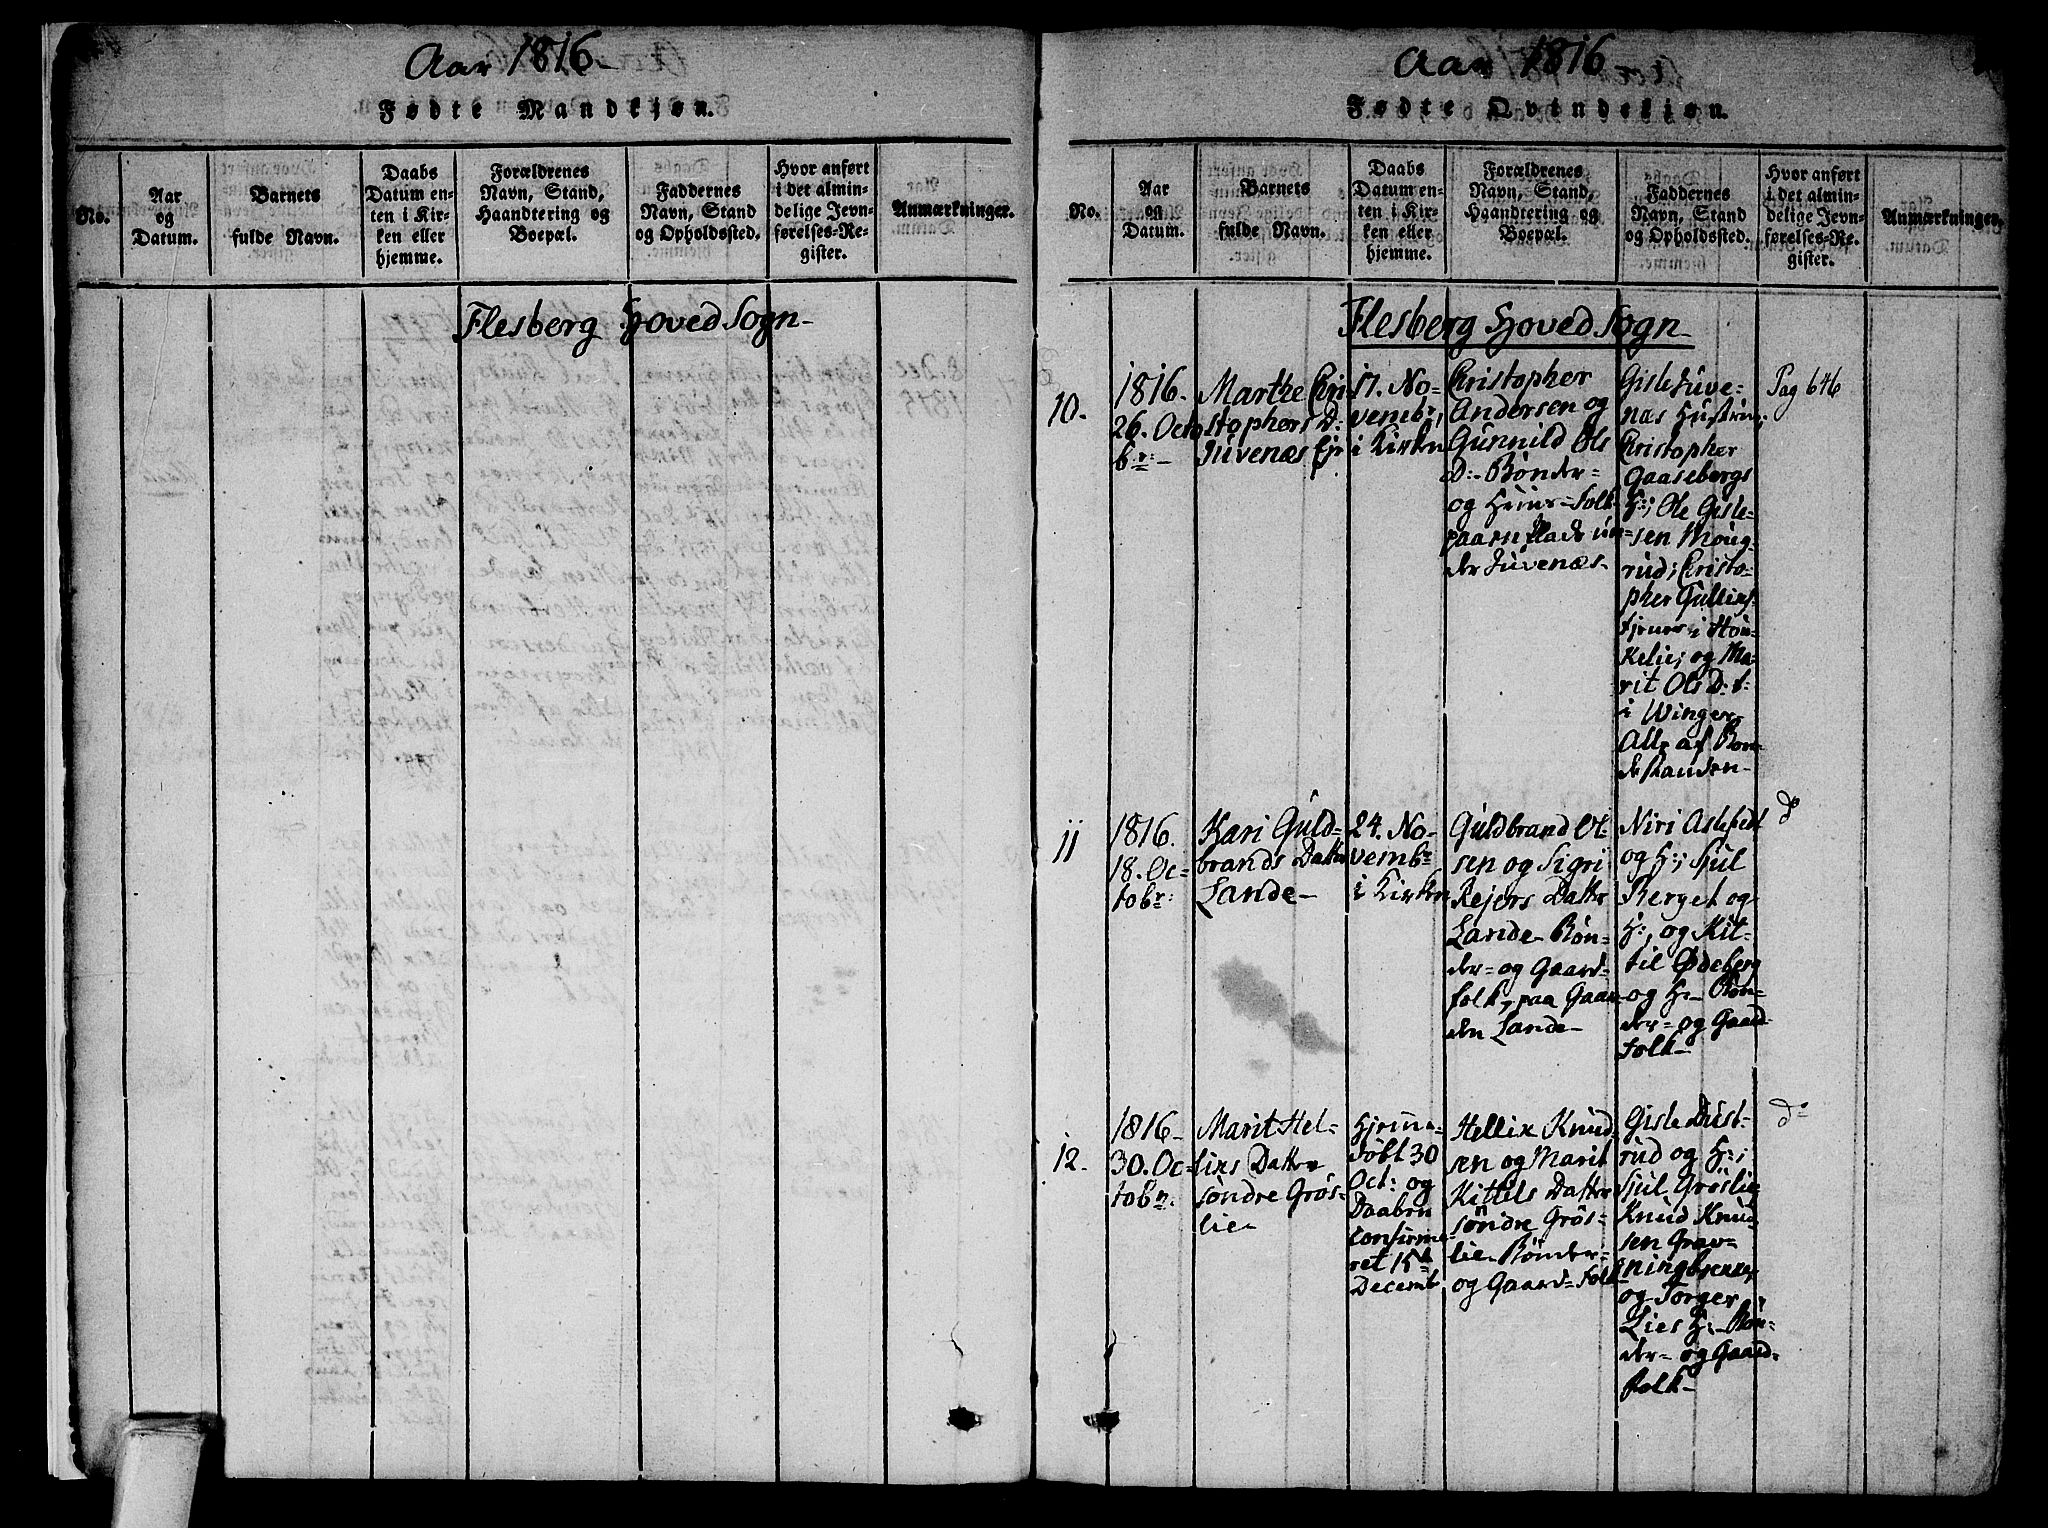 Aar 1816
Fødte Mandkjøn.
No.
Aar
og
Datum.
Barnets
fulde Navn.
Daabs
Datum en-
ten i Kir-
ken eller
hjemme.
Forældrenes
Navn, Stand,
Haandtering og
Boepæl.
Faddernes
Navn, Stand
og Opholdssted.
Hvor anført
i det almin-
delige Jevn-
førelses-Re-
gister.
Anmærkninger.
Flesberg Hoved Sogn
Aar 1816
Fødte Qvindekjøn.
No.
Aar
og
Datum.
Barnets
fulde Navn.
Daabs
Datum en-
ten i Kir-
ken eller
hjemme.
Forældrenes
Navn, Stand,
Haandtering og
Boepæl.
Faddernes
Navn, Stand
og Opholdssted.
Hvor anført
i det almin-
delige Jevn-
førelses-Re-
gister.
Anmærkninger.
Flesberg Hoved Sogn
10.
1816.
26. Octo
br:
Marthe Chri
stophers D:
Juvenæs Eje
17. No-
vembr,
i Kirken
Christopher
Andersen og
Gunnild Ols
D:- Bønder-
og Huus-folk
paa en Plads un-
der Juvenæs-
Gisle Juve-
næs Hustrue,
Christopher
Gaasebergs
H:; Ole Gisle-
sen Moug-
rud; Christo-
pher Gulliks
tjener i Hou-
kelie; og Ma-
rit Ols D: t:
i Winger
Alle af Bon-
destanden-
Pag 646
11
1816.
18. Oc-
tobr:
Kari Guld-
brands Datter
Lande-
24. No-
vembr
i Kirken
Guldbrand Ol-
sen og Sigri
Rejers Datter
Lande- Bøn-
der- og Gaard-
folk, paa Gaar-
den Lande-
Niri Aslefett
og H:; Sjul
Berget og
H:, og Kit-
til Ødeberg
og H:- Bøn-
der- og Gaard
folk-
do
12.
1816-
30. Oc-
tobr.
Marit Hel-
lixs Datter
søndre Grøs-
lie-
Hjemme-
døbt 30
Oct: og
Daaben
confirme-
ret 15d
Decembr
Hellix Knud
sen og Marit
Kittils Datter
søndre Grøs-
lie- Bønder-
og Gaard-folk
Gisle Dust-
rud og H:;
Sjul Grøslie
Knud Knud
sen Grav-
ningbrenner
og Torger
Lies H:- Bøn-
der- og Gaard-
folk-
do